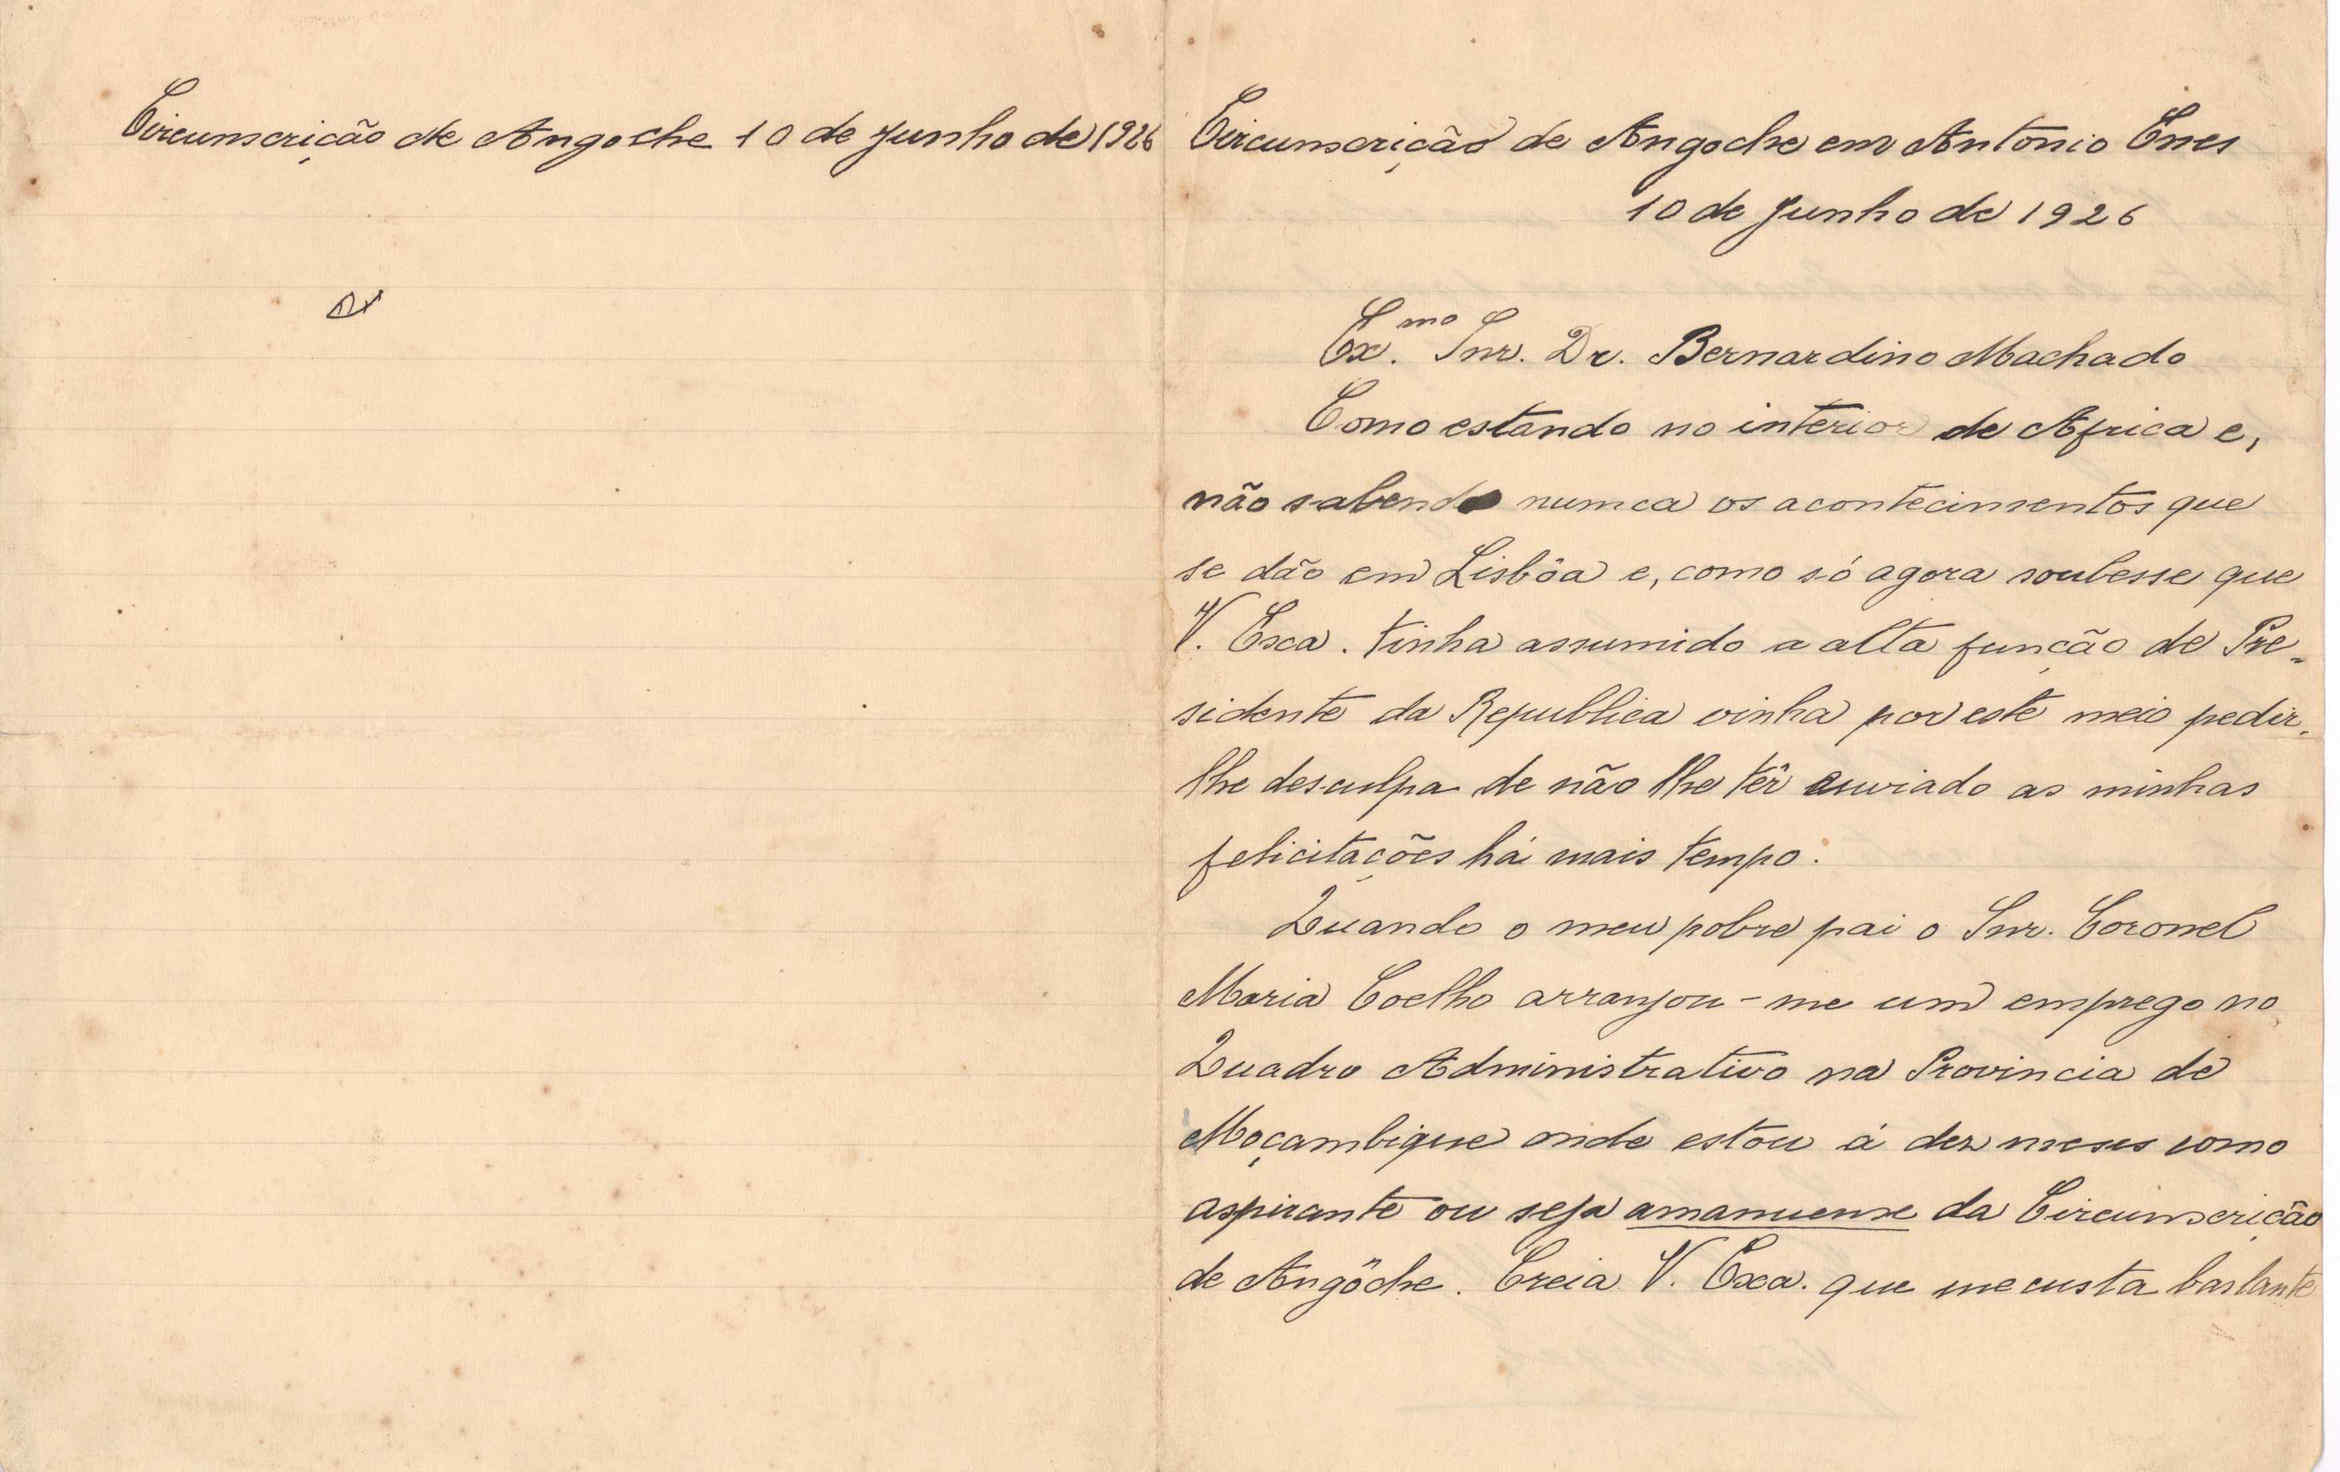 Circunscrição de Angoche 10 de Junho de 1926
Circunscrição de Angoche em Antonio Enes
10 de Junho de 1926
Ex.mo Snr. Dr. Bernardino Machado
Como estando no interior de Africa e,
não sabendo numca os acontecimentos que
se dão em Lisbôa e, como só agora soubesse que
V. Exca. tinha assumido a alta função de Pre-
sidente da Republica vinha por este meio pedir-
lhe desculpa de não lhe têr enviado as minhas
felicitações há mais tempo.
Quando o meu pobre pai o Snr. Coronel
Maria Coelho arranjou-me um emprego no
Quadro Administrativo na Provincia de
Moçambique onde estou á dez meses como
aspirante ou seja amanuense da Circunscrição
de Angôche. Creia V. Exca. que me custa bastante